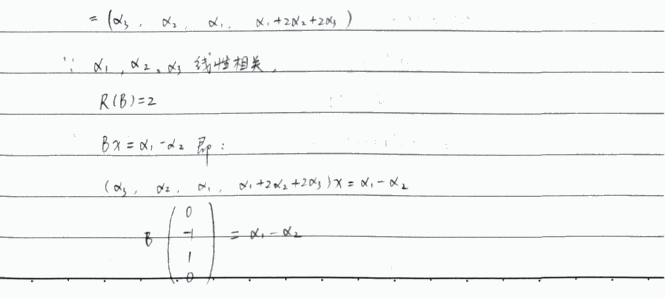 = (α₃, α₂, α₁, α₁+2α₂+2α₃)
∵ α₁, α₂, α₃ 线性相关,
R(B)=2
Bx = α₁-α₂ 即:
(α₃, α₂, α₁, α₁+2α₂+2α₃)x = α₁-α₂
B (0 -1 1 0) = α₁-α₂